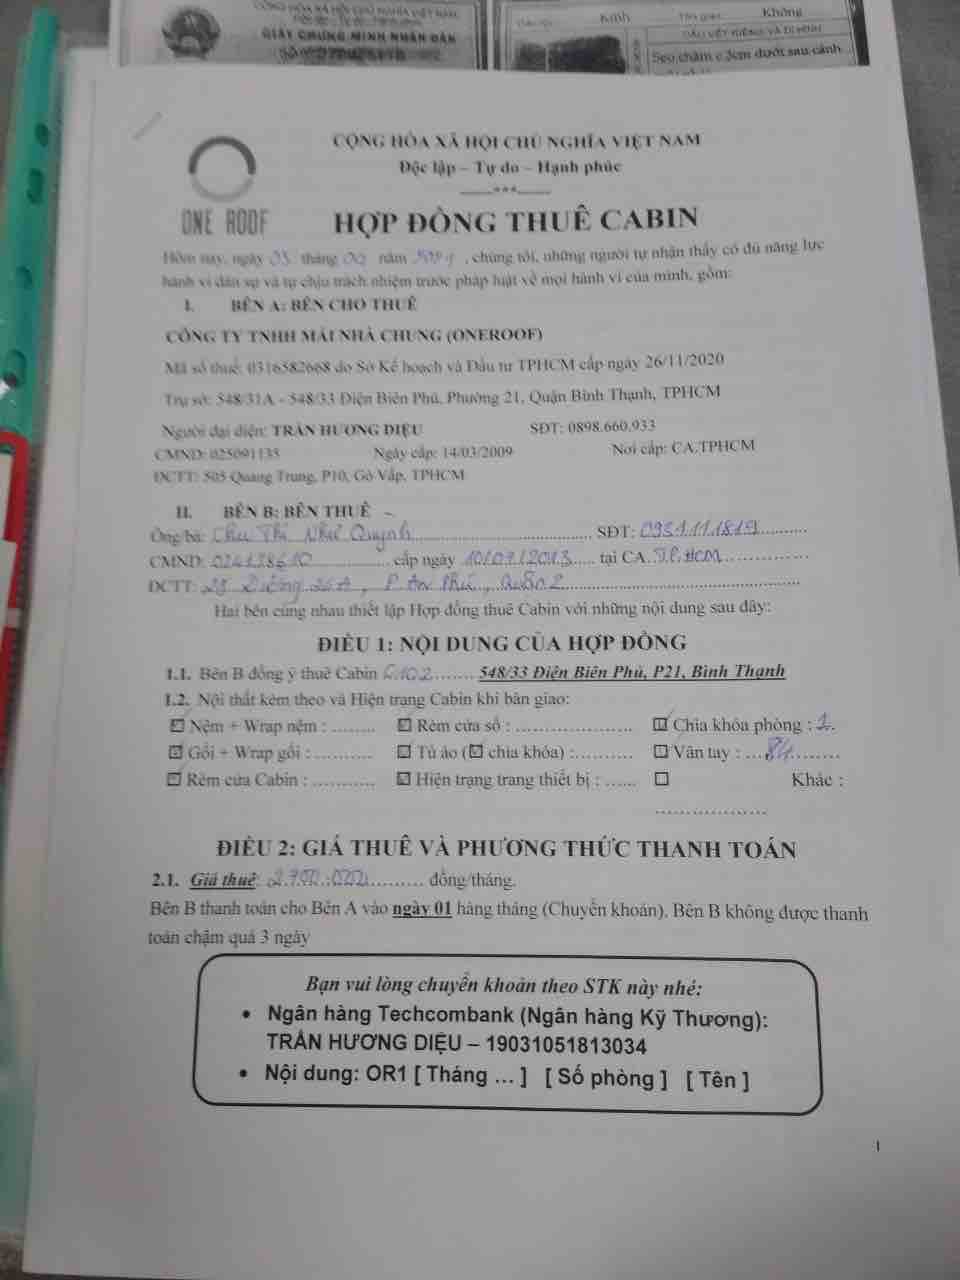 CỘNG HÒA XÃ HỘI CHỦ NGHĨA VIỆT NAM
GIẤY CHỨNG MINH NHÂN DÂN
SỐ
Kinh
Không
DẤU VẾT RIÊNG VÀ DỊ HÌNH
Sẹo chấm c.3cm dưới sau cánh
CỘNG HÒA XÃ HỘI CHỦ NGHĨA VIỆT NAM
Độc lập – Tự do – Hạnh phúc
***
ONE ROOF
HỢP ĐỒNG THUÊ CABIN
Hôm nay, ngày 03 tháng 09 năm , chúng tôi, những người tự nhận thấy có đủ năng lực
hành vi dân sự và tự chịu trách nhiệm trước pháp luật về mọi hành vi của mình, gồm:
I. BÊN A: BÊN CHO THUÊ
CÔNG TY TNHH MÁI NHÀ CHUNG (ONEROOF)
Mã số thuế: 0316582668 do Sở Kế hoạch và Đầu tư TPHCM cấp ngày 26/11/2020
Trụ sở: 548/31A - 548/33 Điện Biên Phủ, Phường 21, Quận Bình Thạnh, TPHCM
Người đại diện: TRẦN HƯƠNG DIỆU SĐT: 0898.660.933
CMND: 025091135 Ngày cấp: 14/03/2009 Nơi cấp: CA.TPHCM
ĐCTT: 505 Quang Trung, P10, Gò Vấp, TPHCM
II. BÊN B: BÊN THUÊ
Ông/bà: Chu Thị Như Quỳnh SĐT: 0931.11.1819
CMND: cấp ngày 10/07/2013 tại CA. T.P.HCM
ĐCTT: 28 Đường 36A, P. An Phú, Quận 2
Hai bên cùng nhau thiết lập Hợp đồng thuê Cabin với những nội dung sau đây:
ĐIỀU 1: NỘI DUNG CỦA HỢP ĐỒNG
1.1. Bên B đồng ý thuê Cabin 6.102 548/33 Điện Biên Phủ, P21, Bình Thạnh
1.2. Nội thất kèm theo và Hiện trạng Cabin khi bàn giao:
Nệm + Wrap nệm : ........ Rèm cửa sổ : ........ Chìa khóa phòng : 1.
Gối + Wrap gối : ........ Tủ áo ( chìa khóa) : ........ Vân tay : ... 84 ........
Rèm cửa Cabin : ........ Hiện trạng trang thiết bị : ...... Khác :
........
ĐIỀU 2: GIÁ THUÊ VÀ PHƯƠNG THỨC THANH TOÁN
2.1. Giá thuê: 2.700.000 ........ đồng/tháng.
Bên B thanh toán cho Bên A vào ngày 01 hàng tháng (Chuyển khoản). Bên B không được thanh
toán chậm quá 3 ngày
Bạn vui lòng chuyển khoản theo STK này nhé:
• Ngân hàng Techcombank (Ngân hàng Kỹ Thương):
TRẦN HƯƠNG DIỆU – 19031051813034
• Nội dung: OR1 [ Tháng ... ] [ Số phòng ] [ Tên ]
1